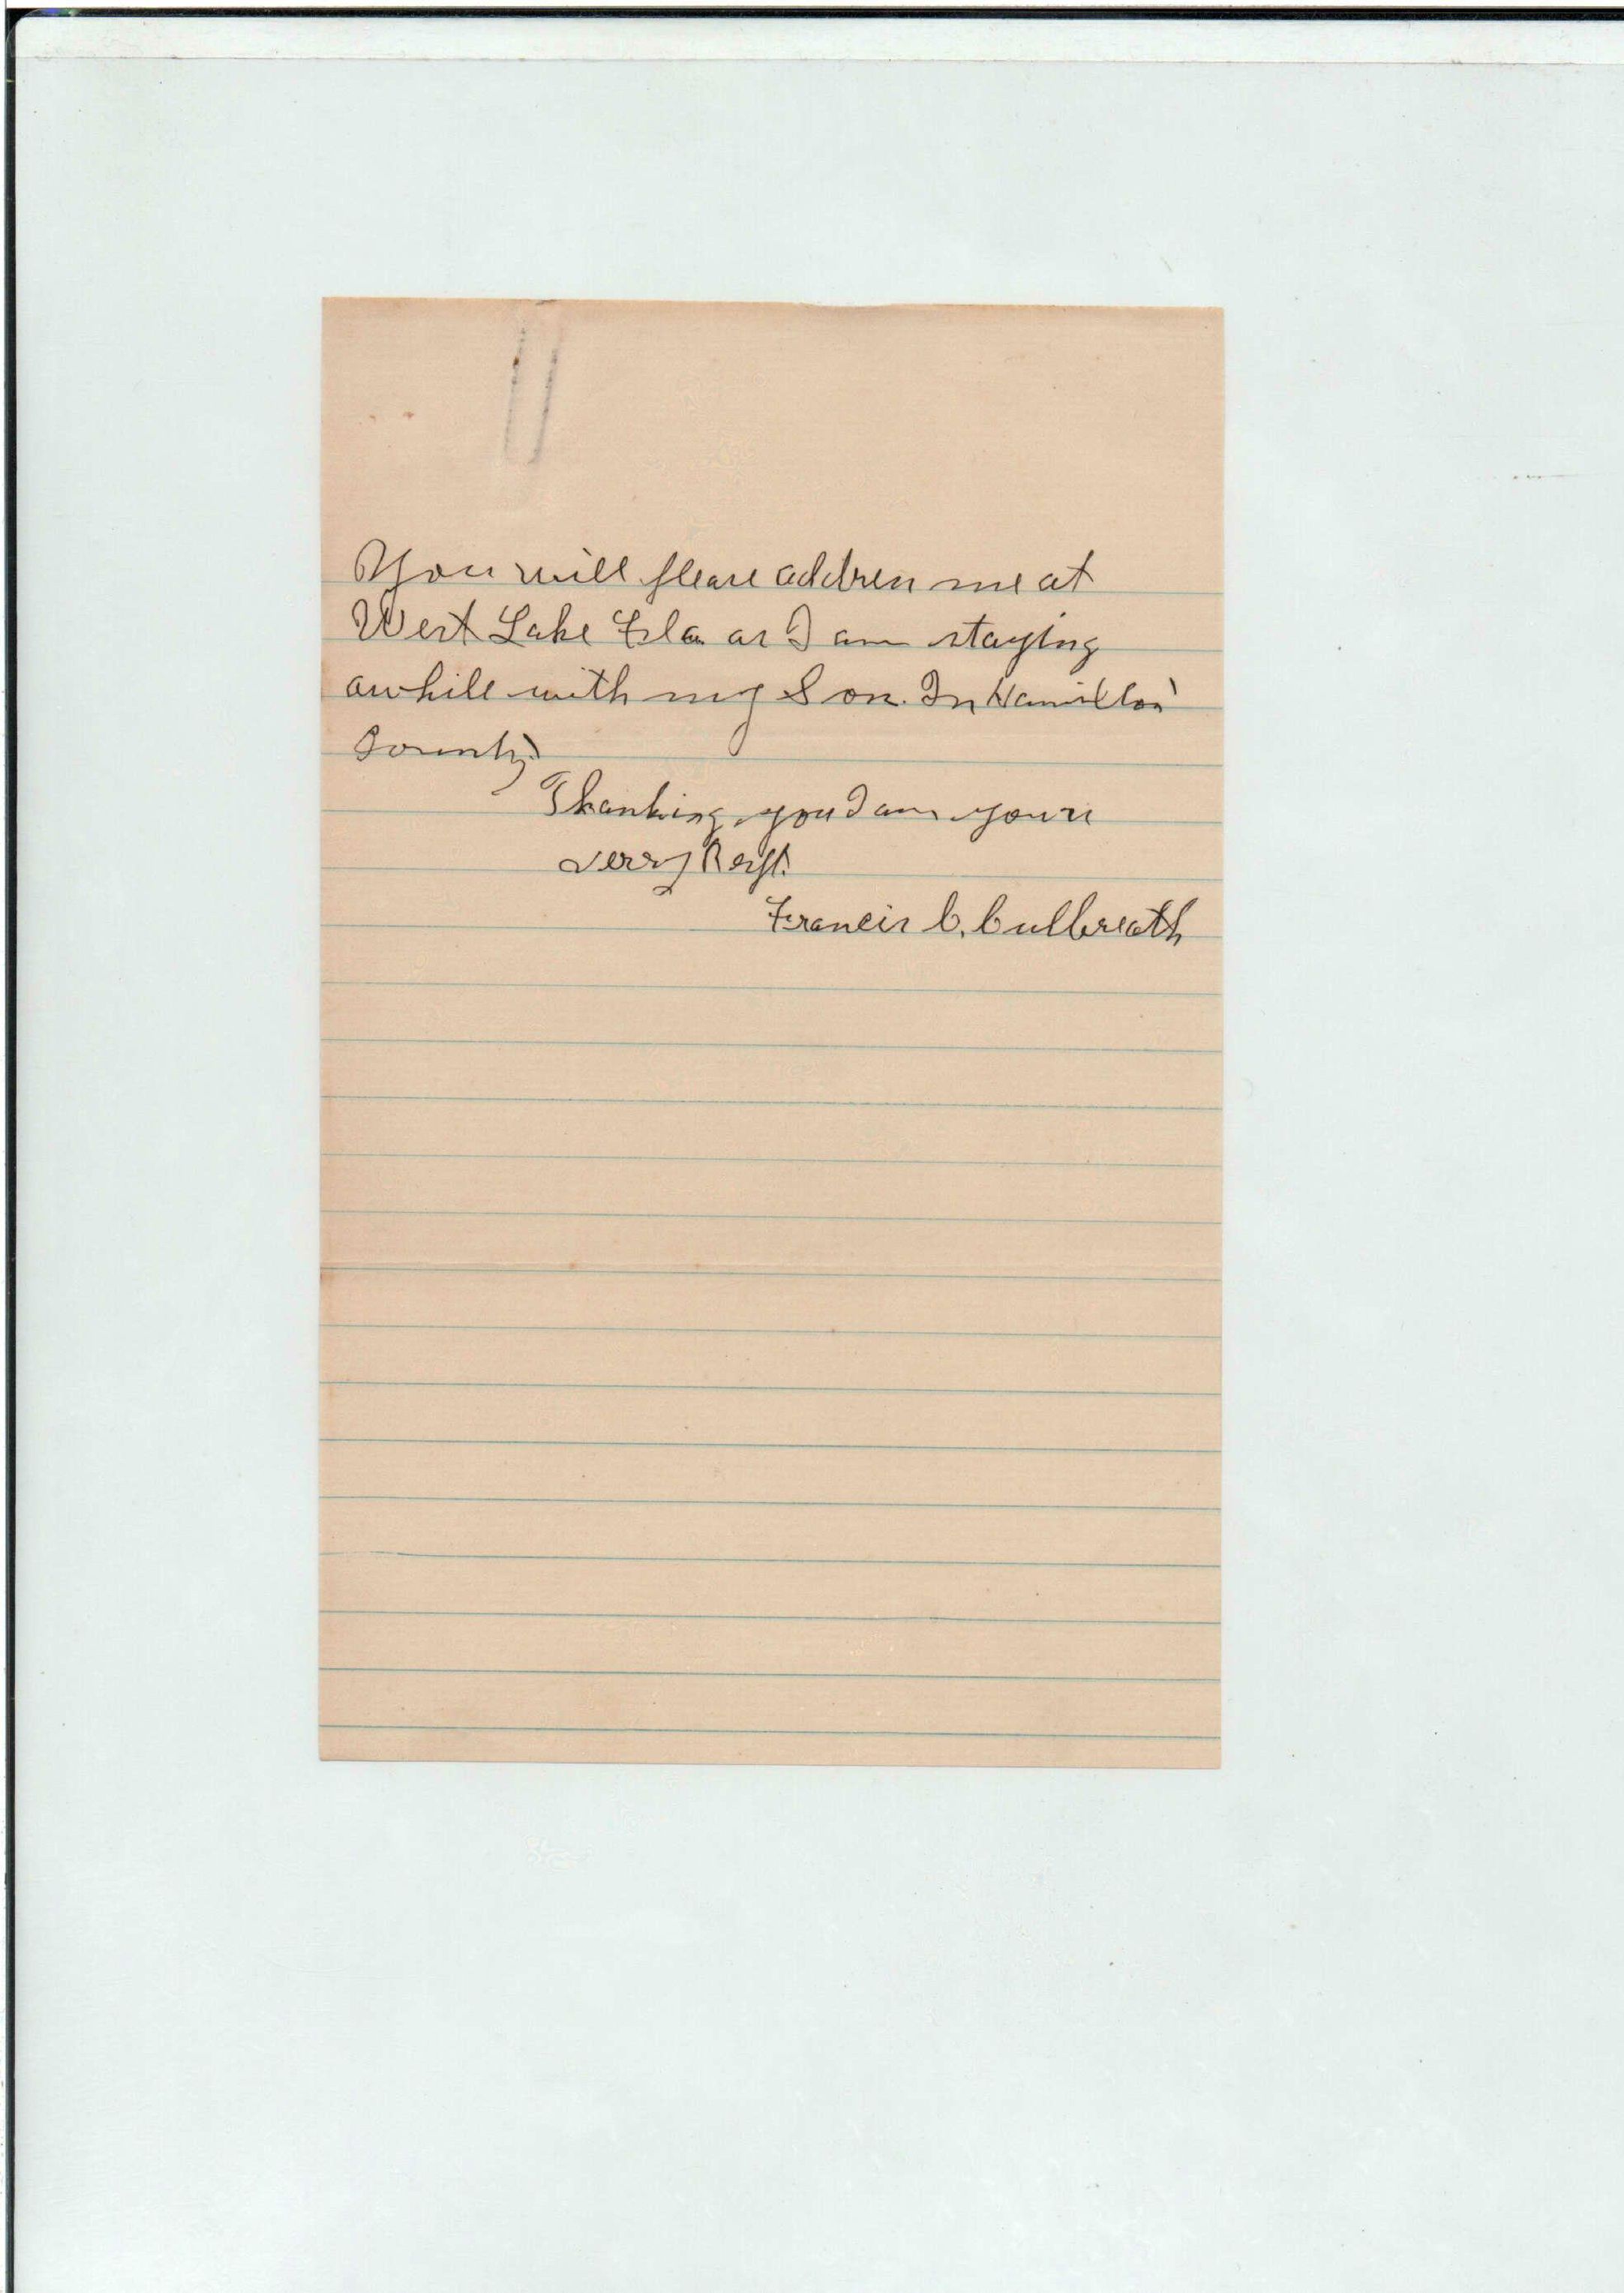 You will please address me at
West Lake Fla as I am staying
awhile with my Son. In Hamilton
County
Thanking you I am yours
very Respt.
Francis C. Culbreath